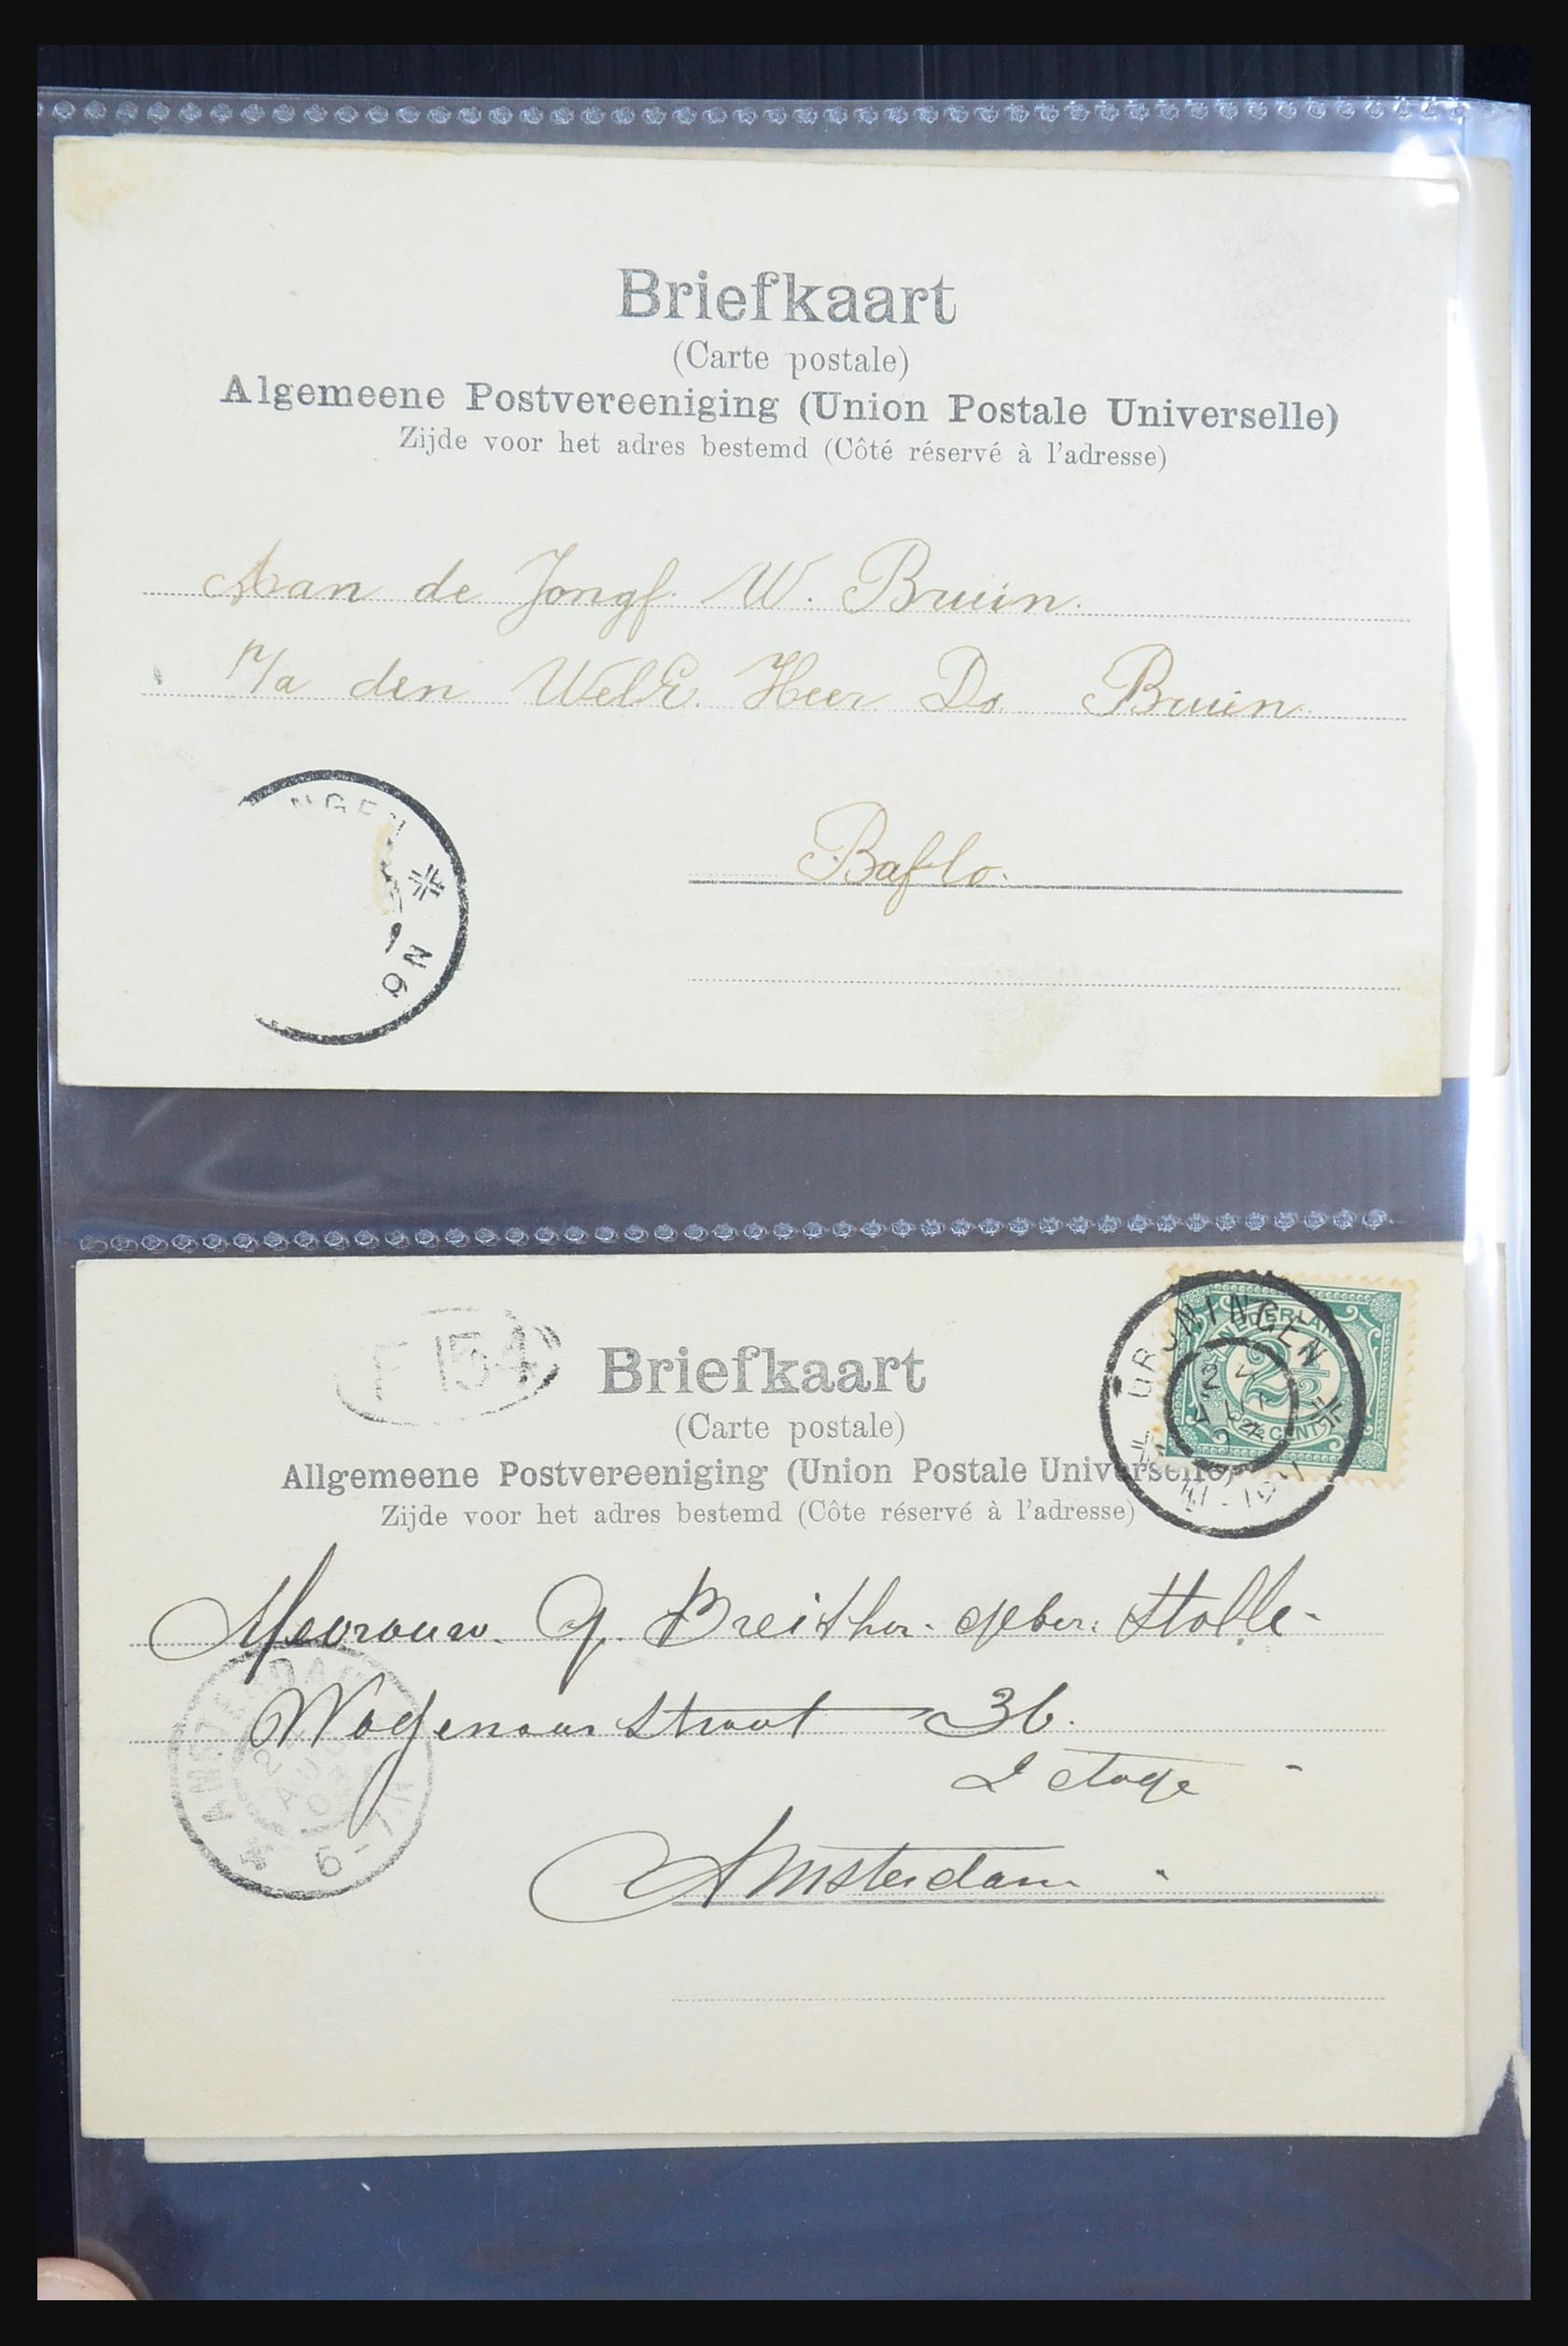 Briefkaart
(Carte postale)
Algemeene Postvereeniging (Union Postale Universelle)
Zijde voor het adres bestemd (Côté réservé à l'adresse)
Aan de Jongf. W. Bruin.
p/a den WelE. Heer Ds Bruin
NGEN
N 6
Baflo.
F 154
GRONINGEN
NEDERLAND
2½
2½ CENT
Briefkaart
(Carte postale)
Allgemeene Postvereeniging (Union Postale Universelle)
Zijde voor het adres bestemd (Côte réservé à l'adresse)
Mevrouw. G. Breithor. geber. Stolle-
Wagenaar Straat 36.
2 etage
AMSTERDAM
5-7 N
Amsterdam